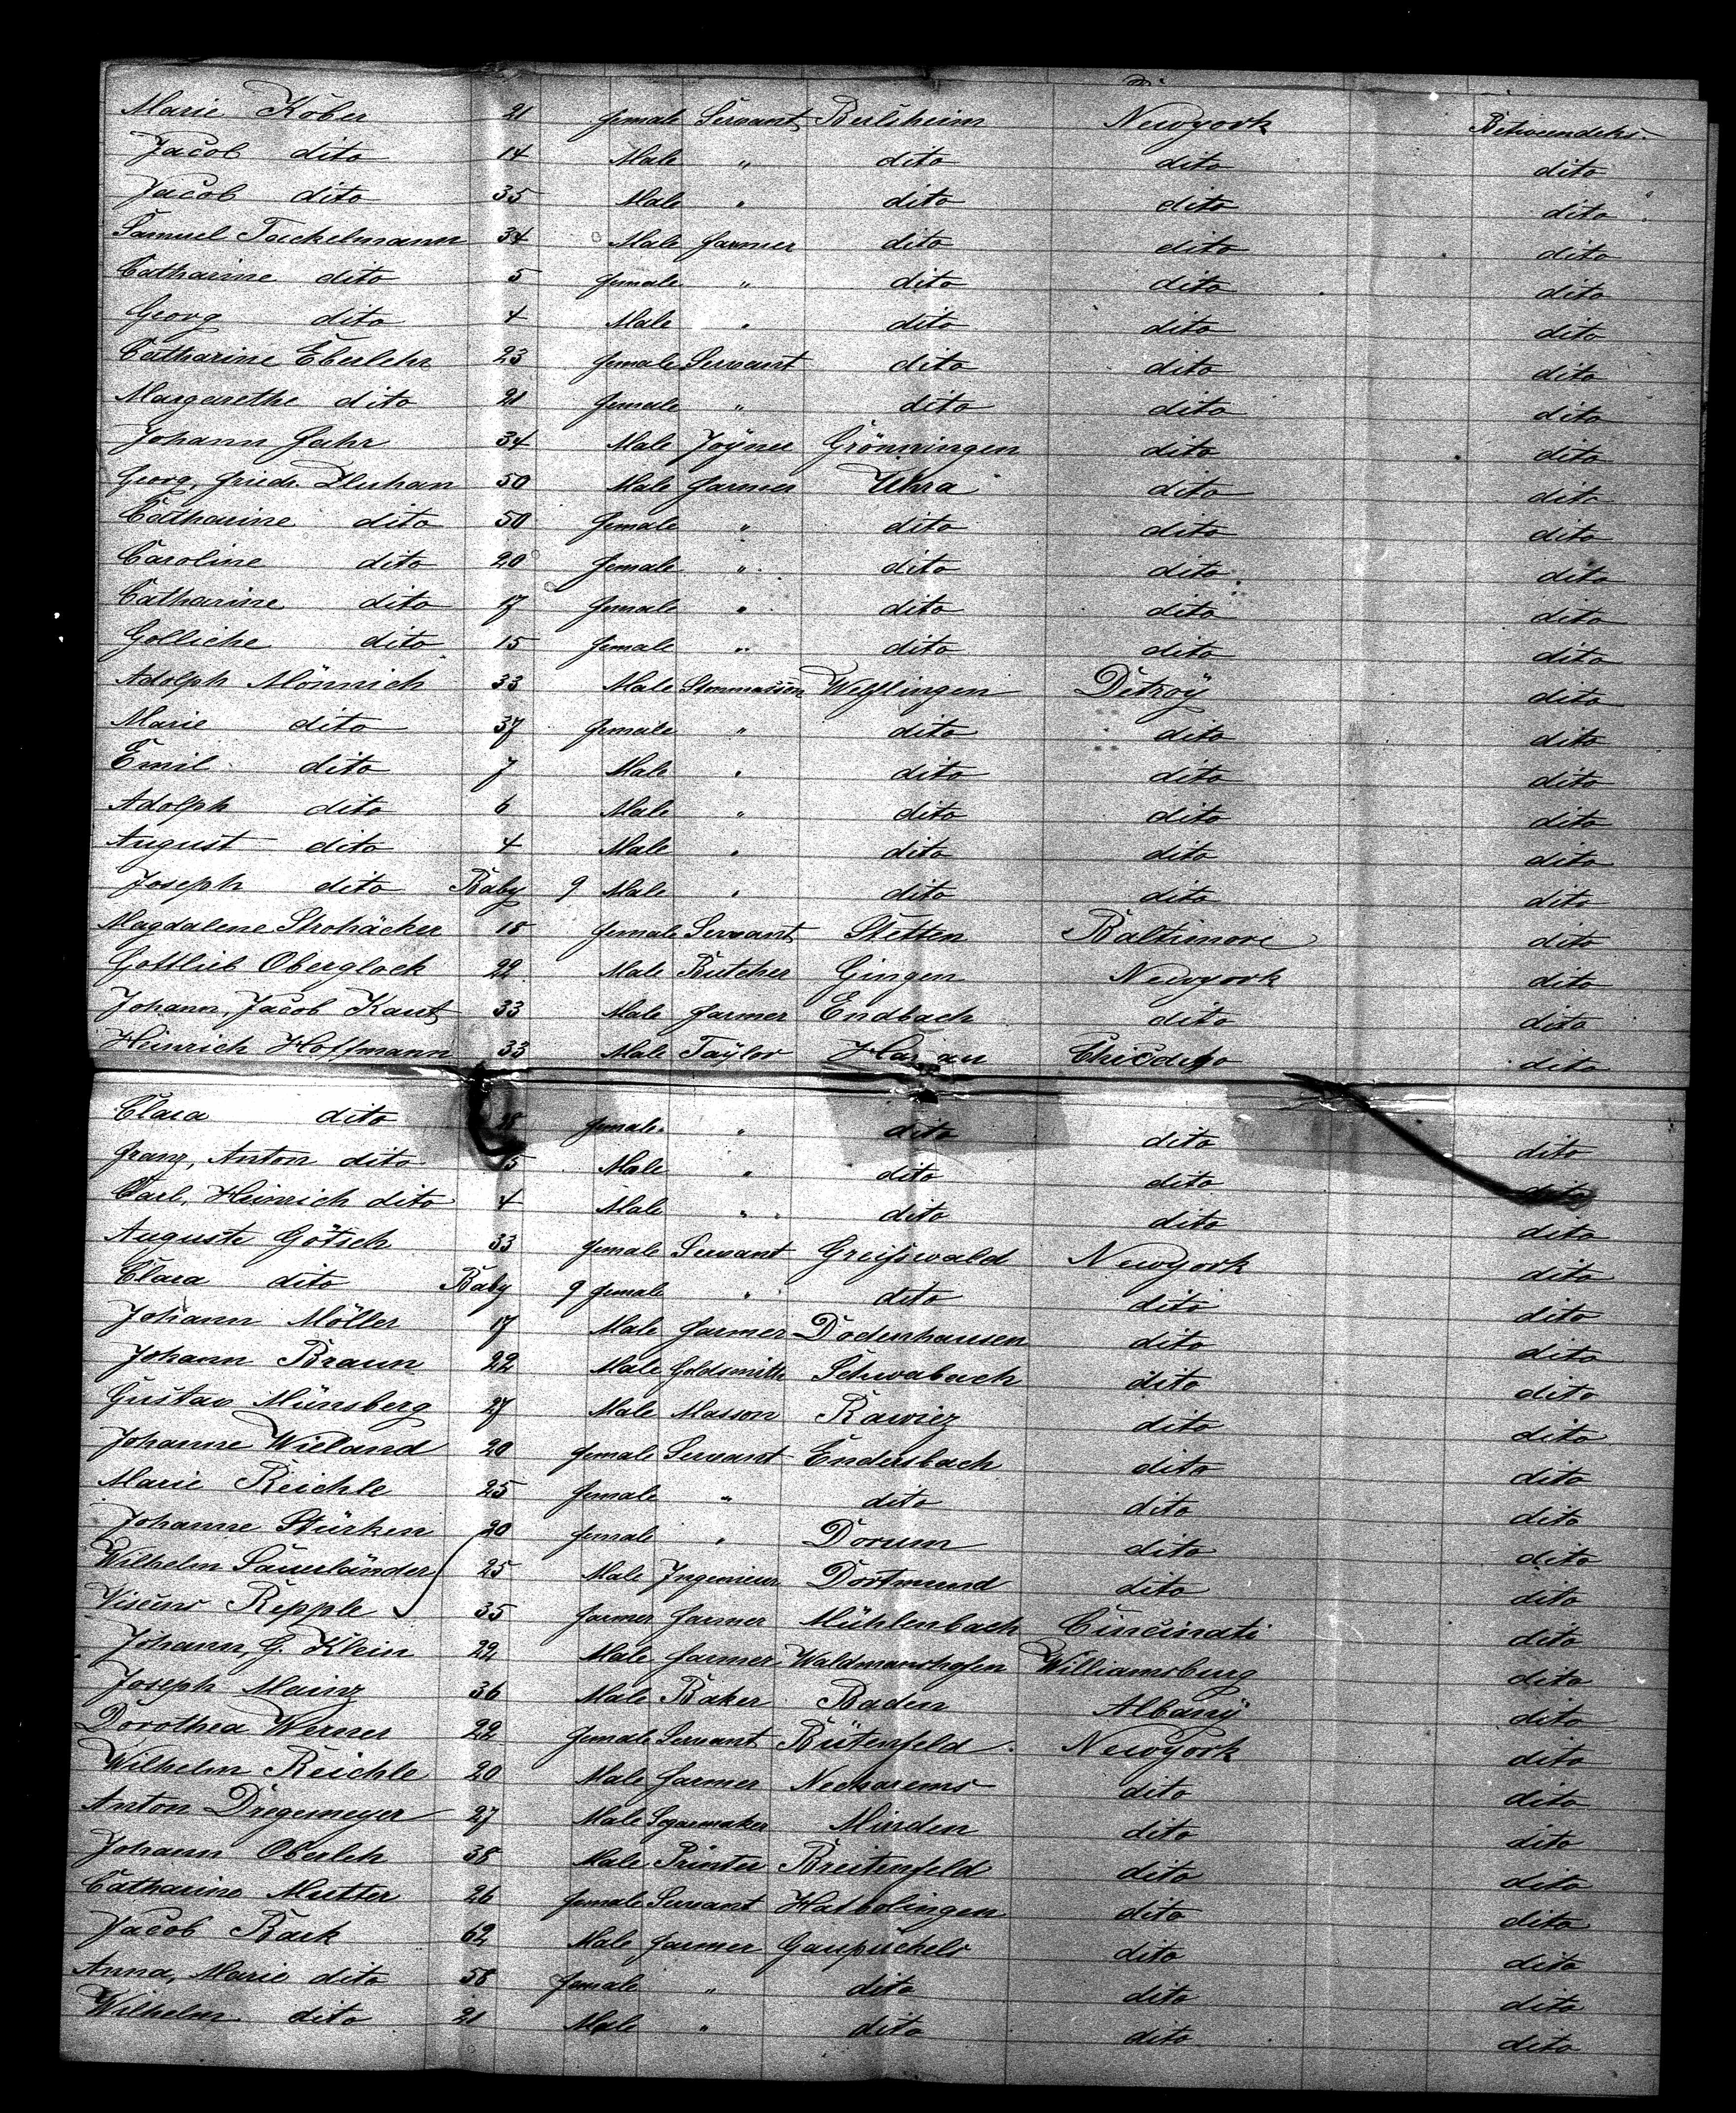 Marie Kober 21 female Servant Beilsheim Newyork Betweendeks
Jacob dito 14 Male " dito dito dito
Jacob dito 35 Male " dito dito dito
Samuel Tackelmann 34 Male farmer dito dito dito
Catharine dito 5 female " dito dito dito
Georg dito 4 Male " dito dito dito
Catharine Eberlehr 23 female Servant dito dito dito
Margarethe dito 21 female " dito dito dito
Johann Fahr 34 Male Joyner Grönningen dito dito
Georg, Friedr. Dluhan 50 Male farmer Uhra dito dito
Catharine dito 50 female " dito dito dito
Caroline dito 20 female " dito dito dito
Catharine dito 17 female " dito dito dito
Golliche dito 15 female " dito dito dito
Adolph Mönnich 33 Male Stonmasson Welflingen Detroÿ dito
Marie dito 37 female " dito dito dito
Emil dito 7 Male " dito dito dito
Adolph dito 6 Male " dito dito dito
August dito 4 Male " dito dito dito
Joseph dito Baby 9 Male " dito dito dito
Magdalene Strohäcker 18 female Servant Stetten Baltimore dito
Gottlieb Oberglock 22 Male Butcher Gingen Newyork dito
Johann, Jacob Kaut 33 Male farmer Endbach dito dito
Heinrich Hoffmann 33 Male Taÿlor dito
Clara dito female " dito dito dito
Franz, Anton dito 5 Male " dito dito dito
Carl, Heinrich dito 4 Male " dito dito dito
Auguste Götsch 33 female Servant Greifswald Newyork dito
Clara dito Baby 9 female " dito dito dito
Johann Möller 17 Male farmer Dodenhausen dito dito
Johann Braun 22 Male Goldsmith Schwabach dito dito
Gustav Münsberg 27 Male Masson Rawiez dito dito
Johanne Wieland 20 female Servant Endersbach dito dito
Marie Reichle 25 female " dito dito dito
Johanne Stürken 20 female " Dorum dito dito
Wilhelm Sauerländer 25 Male Ingenieur Dortmund dito dito
Viscens Repple 35 farmer farmer Mühlenbach Cincinati dito
Johann, G. Klein 22 Male farmer Waldmanshofen Williamsburg dito
Joseph Mainz 36 Male Baker Baden Albanÿ dito
Dorothea Werner 22 female Servant Bütenfeld Newyork dito
Wilhelm Reichle 20 Male farmer Neckarems dito dito
Anton Dregemeyer 27 Male Segarmaker Minden dito dito
Johann Oberleh 38 Male Printer Breitenfeld dito dito
Catharine Mutter 26 female Servant Hatbolingen dito dito
Jacob Back 62 Male farmer Gaupückels dito dito
Anna, Marie dito 58 female " dito dito dito
Wilhelm dito 21 Male " dito dito dito